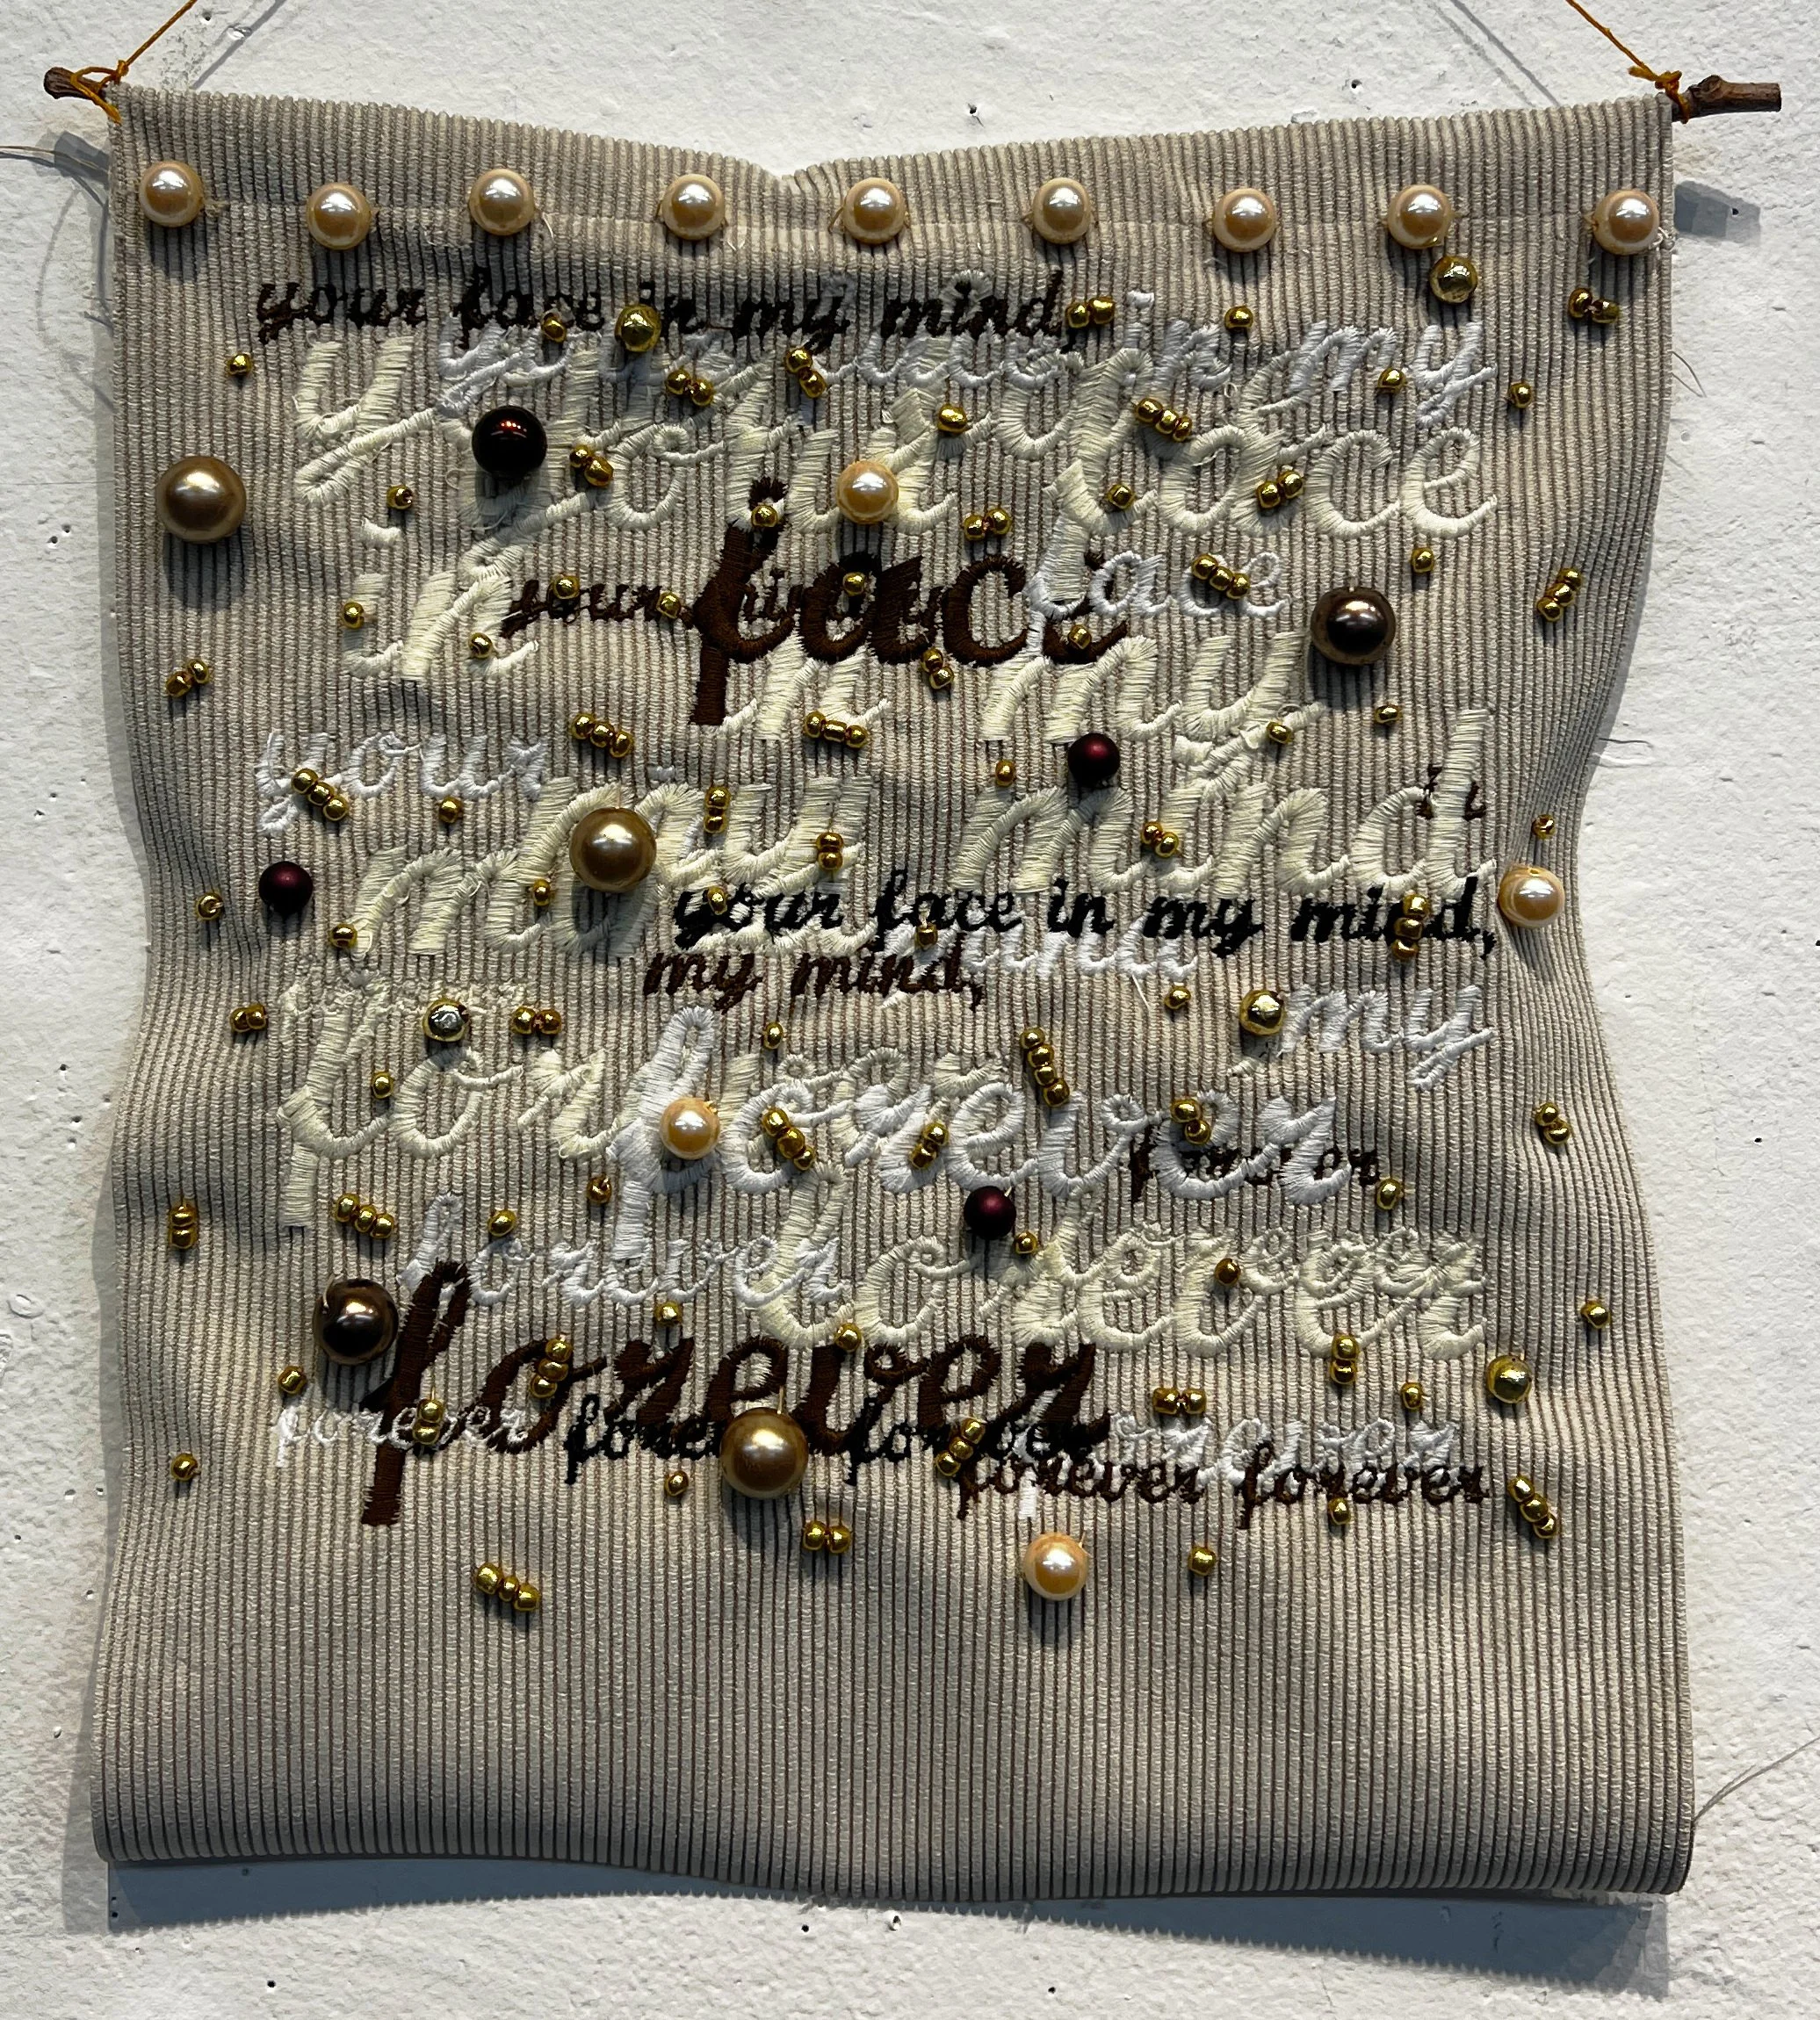 your face in my mind,
your face in my
your face
your face
in your face face
in my
your
my mind
in
your face in my mind,
my mind,
my
forever forever
forever
forever forever
forever
forever forever forever
forever forever